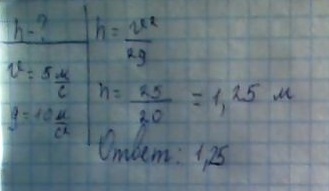 h - ?
v = 5 м/с
g = 10 м/с²
h = v²/2g
h = 25/20 = 1,25 м
Ответ: 1,25